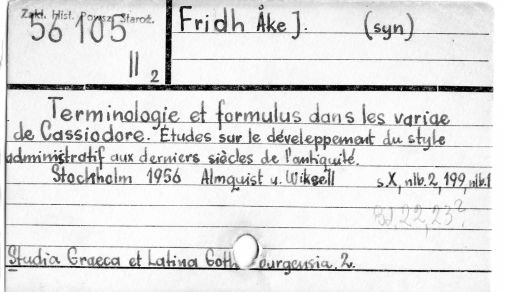 Zakł. Hist. Powsz. Staroż.
56105
II 2
Fridh Åke J. (syn)
Terminologie et formulus dans les variae
de Cassiodore. Études sur le développement du style
administratif aux derniers siècles de l'antiquité.
Stockholm 1956 Almquist u. Wiksell s. X, nlb. 2, 199, nlb. 1
22, 23?
Studia Graeca et Latina Goth ourgensia. 2.